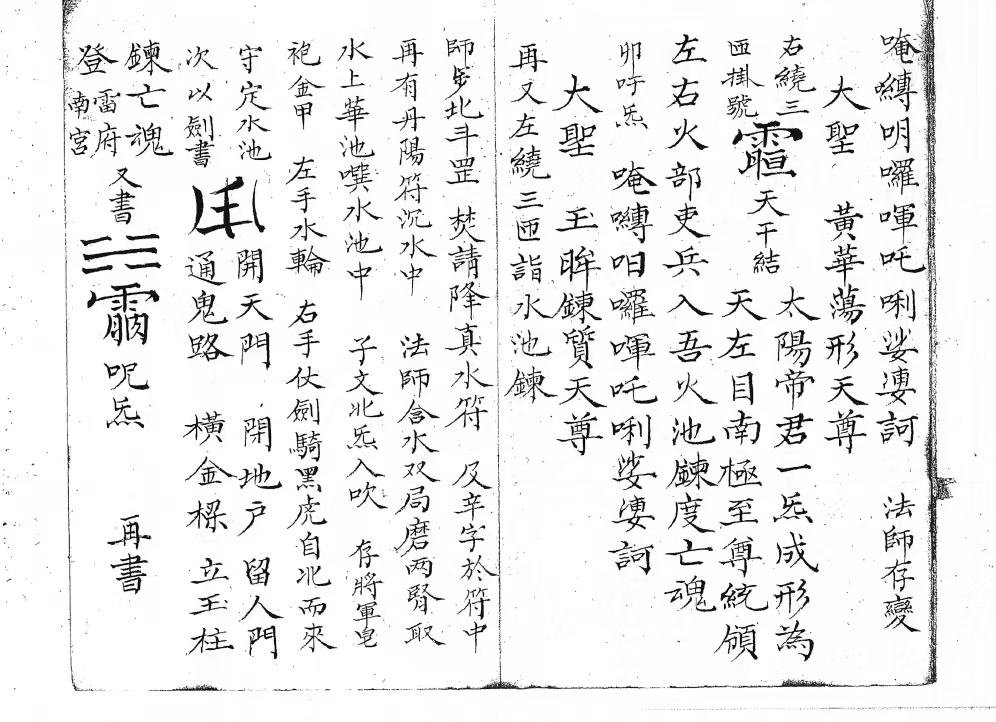 唵嚩明囉㖷吒唎娑㜢訶　法師存變
大聖　黃華蕩形天尊
右繞三　太陽帝君一炁成形為
匝掛號　天干結　天左目南極至尊統領
左右火部吏兵入吾火池鍊度亡魂
卯吁炁　唵嚩呾囉㖷吒唎娑㜢訶
大聖　玉眸鍊質天尊
再又左繞三匝詣水池鍊
師步北斗罡　焚請降真水符　及辛字於符中
再有丹陽符沉水中　法師含水双局磨两腎取
水上華池噀水池中　子文北炁入吹　存將軍皂
袍金甲　左手水輪　右手仗劍騎黑虎自北而來
守定水池　開天門　閉地户　留人門
次以劍書　通鬼路　橫金樑　立玉柱
鍊亡魂　又書　呪炁　再書
登　雷府
南宮